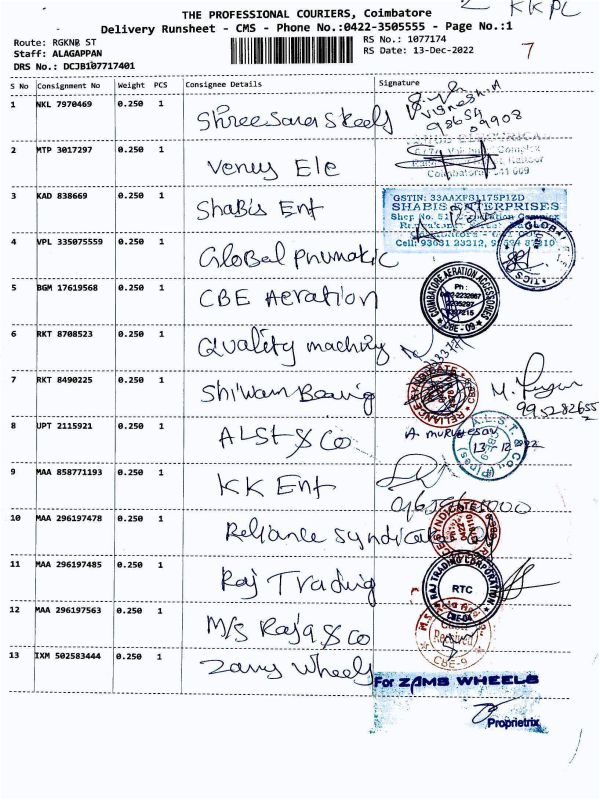 KKPL
THE PROFESSIONAL COURIERS, Coimbatore
Delivery Runsheet - CMS - Phone No.:0422-3505555 - Page No.:1
Route: RGKNB ST
RS No.: 1077174
Staff: ALAGAPPAN
RS Date: 13-Dec-2022
7
DRS No.: DCJB107717401
S No Consignment No Weight PCS Consignee Details Signature
1 NKL 7970469 0.250 1
98654
09908
2 MTP 3017297 0.250 1 Venus Ele
3 KAD 838669 0.250 1 Shabis Ent
GSTIN: 33AAXFS1175P1ZD
SHABIS ENTERPRISES
4 VPL 335075559 0.250 1 Global Pnumatic
5 BGM 17619568 0.250 1 CBE Aeration
COIMBATORE AERATION ACCESSORIES
CBE - 09
6 RKT 8708523 0.250 1 Quality
7 RKT 8490225 0.250 1
RELIANCE SYNDICATE
M.
9952826552
8 UPT 2115921 0.250 1 ALST & Co
A. murugesan
13-12-22
9 MAA 858771193 0.250 1 KK Ent
10 MAA 296197478 0.250 1 Reliance Syndicate
11 MAA 296197485 0.250 1 Raj Trading
RAJ TRADING CORPORATION
RTC
12 MAA 296197563 0.250 1 M/s Raja & Co
Received
CBE-9
13 IXM 502583444 0.250 1 Zams Wheels
For ZAMS WHEELS
Proprietrix